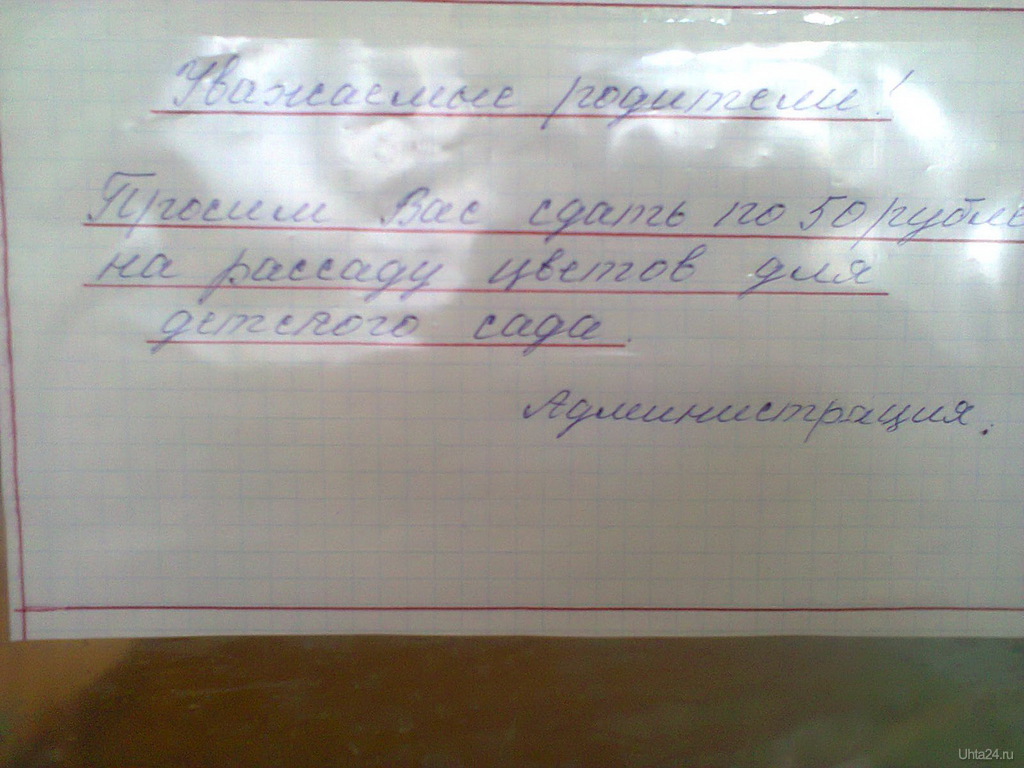 Уважаемые родители!
Просим Вас сдать по 50 рубле
на рассаду цветов для
детского сада.
Администрация.
Uhta24.ru